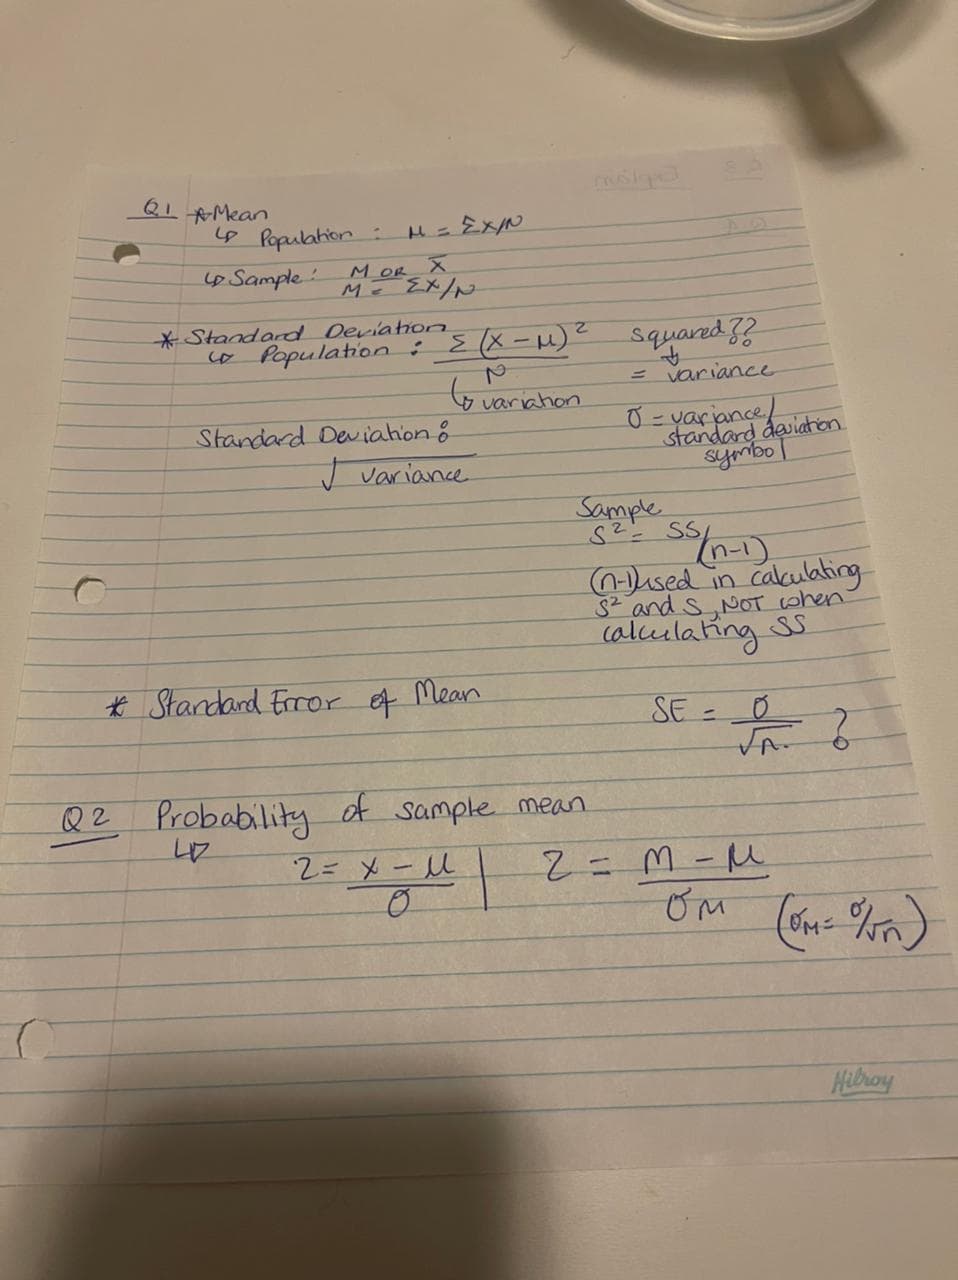 Q1 * Mean
↳ Population : μ = Σx/N
↳ Sample : M OR X̄
M = Σx/N
* Standard Deviation
↳ Population : Σ(x-μ)² / N
↳ variation
squared??
↓
= variance
σ = variance/
standard deviation
symbol
Standard Deviation :
√variance
Sample
s² = SS/(n-1)
(n-1) used in calculating
s² and s, NOT when
calculating SS
* Standard Error of Mean
SE = σ/√n. ?
Q2 Probability of sample mean
↳
z = x-μ / σ | z = M-μ / σM
(σM = σ/√n)
Hilroy
Q3 Explain